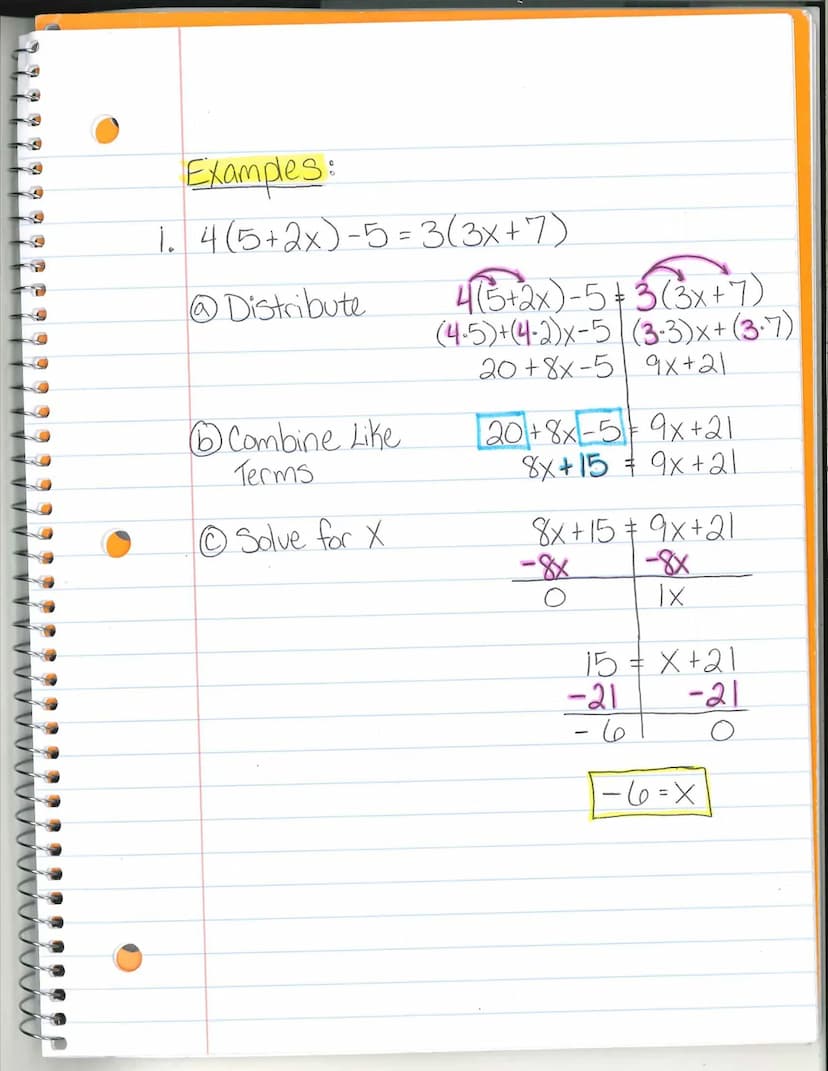 Examples:
1. 4(5+2x)-5=3(3x+7)
ⓐ Distribute 4(5+2x)-5 = 3(3x+7)
(4·5)+(4·2)x-5 (3·3)x+(3·7)
20+8x-5 9x+21
ⓑ Combine Like 20+8x-5 = 9x+21
Terms 8x+15 = 9x+21
ⓒ Solve for X 8x+15 = 9x+21
-8x -8x
0 1x
15 = x+21
-21 -21
-6 0
-6=x